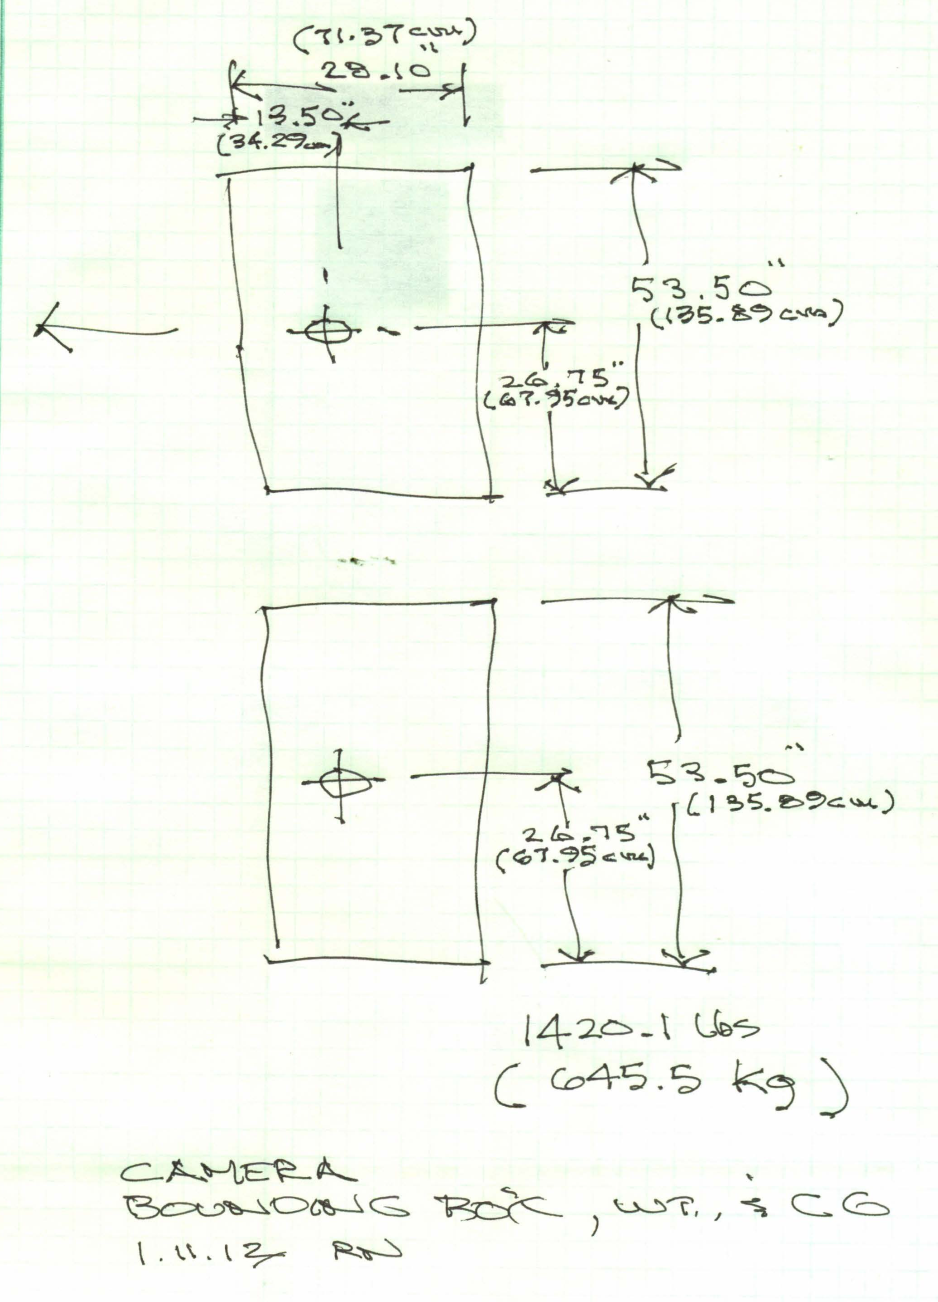 (71.37cm)
28.10"
13.50"
(34.29cm)
53.50"
(135.89cm)
26.75"
(67.95cm)
53.50"
(135.89cm)
26.75"
(67.95cm)
1420.1 lbs
(645.5 Kg)
CAMERA
BOUNDING BOX, WT., & CG
1.11.12 RN